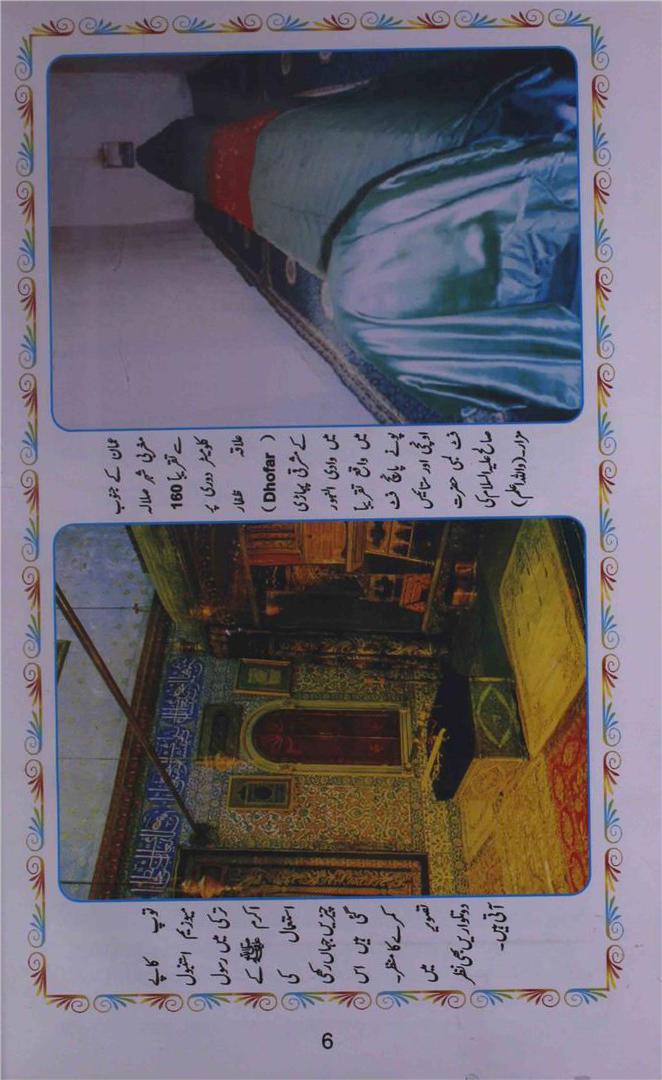 عمان کے جنوب
مغربی شہر صلالہ
سے تقریبا 160
کلومیٹر دوری پر
علاقہ ظفار
(Dhofar)
کے مشرقی پہاڑی
میں وادی
میں واقع تقریبا
پونے پانچ فٹ
اونچی اور ستائیس
فٹ لمبی حضرت
صالح علیہ السلام کی
مزار۔ (واللہ اعلم)
توپ کاپے
میوزیم استنبول
ترکی میں رسول
اکرم ﷺ کے
استعمال کی
چیزیں جہاں رکھی
گئی ہیں اس
کمرے کا منظر۔
تصویر میں
دو تلواریں بھی نظر
آتی ہیں۔
6